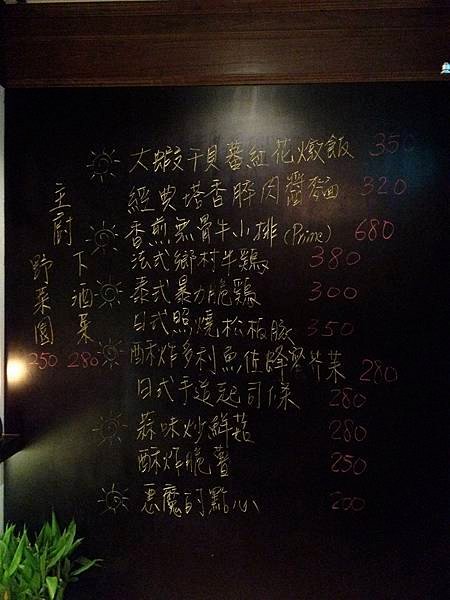 大蝦干貝蕃紅花燉飯 350
經典塔香碎肉醬麵 320
香煎無骨牛小排(Prime) 680
法式鄉村半鷄 380
泰式暴力脆鷄 300
日式照燒松板豚 350
酥炸多利魚佐蜂蜜芥菜 280
日式手造起司條 280
蒜味炒鮮菇 280
酥炸脆薯 250
惡魔的點心 200
主廚
下酒菜 280
野菜園 250